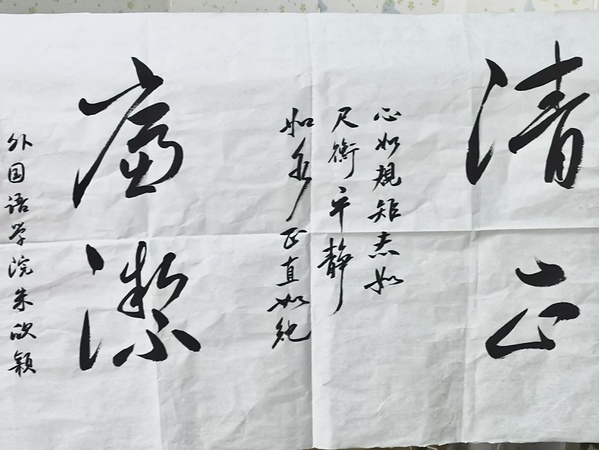 清正
心如規矩志如
尺衡平静
如水正直如绳
廉潔
外国语学院朱欣颖